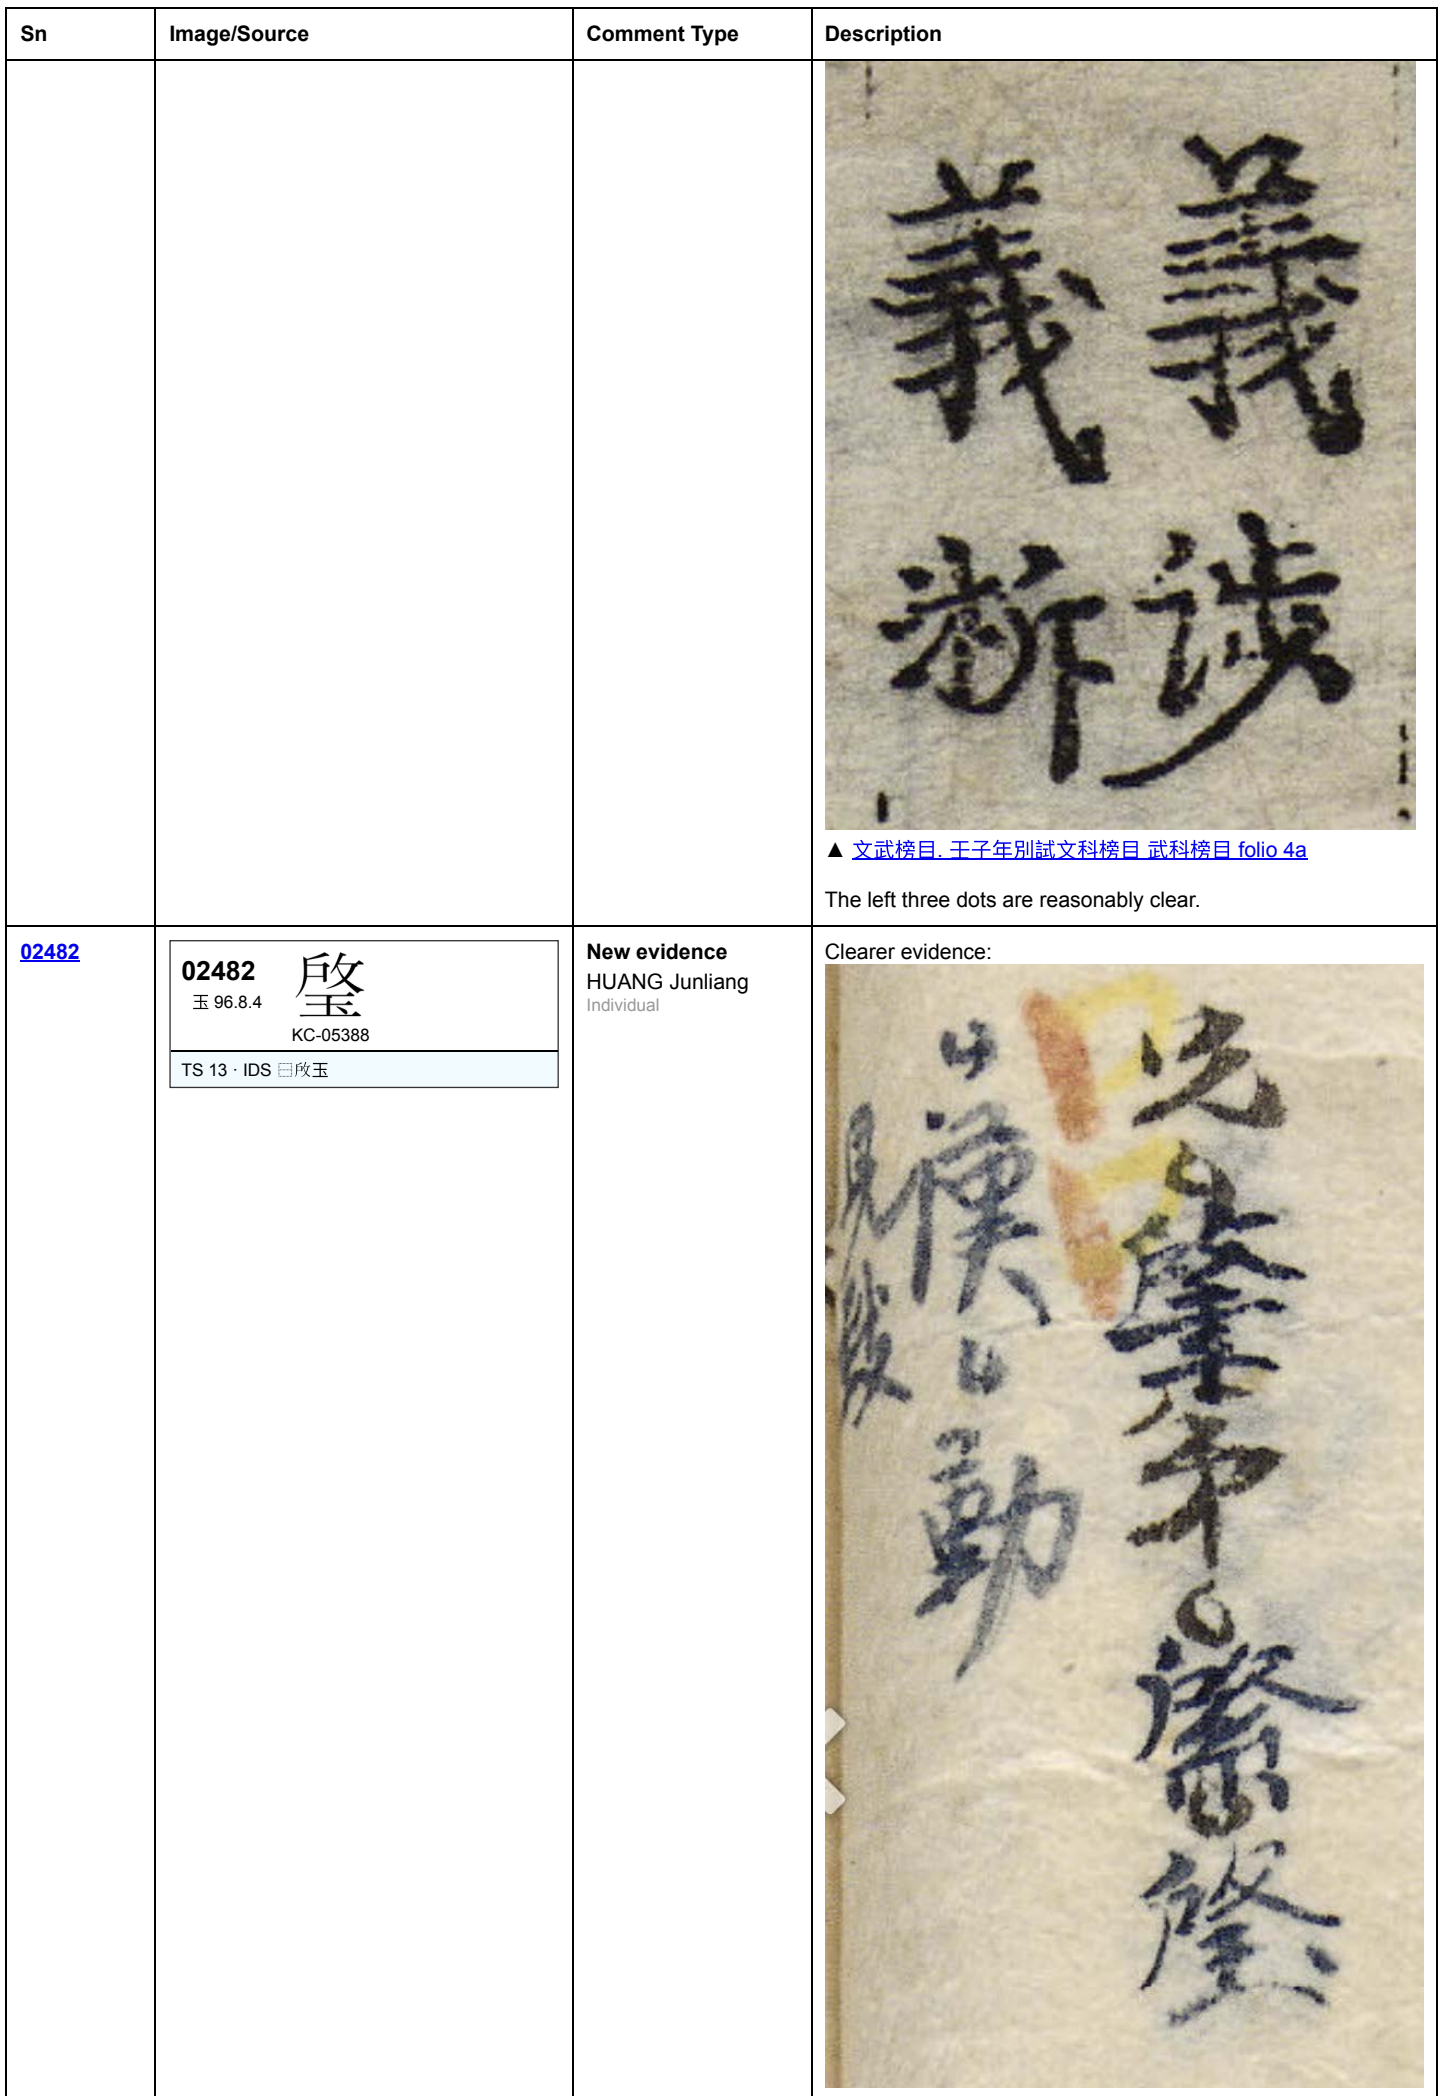 Sn Image/Source Comment Type Description
義 義
涉 漸
▲ 文武榜目. 王子年別試文科榜目 武科榜目 folio 4a
The left three dots are reasonably clear.
02482
02482
玉 96.8.4
KC-05388
TS 13 · IDS ⿱啟玉
New evidence
HUANG Junliang
Individual
Clearer evidence: